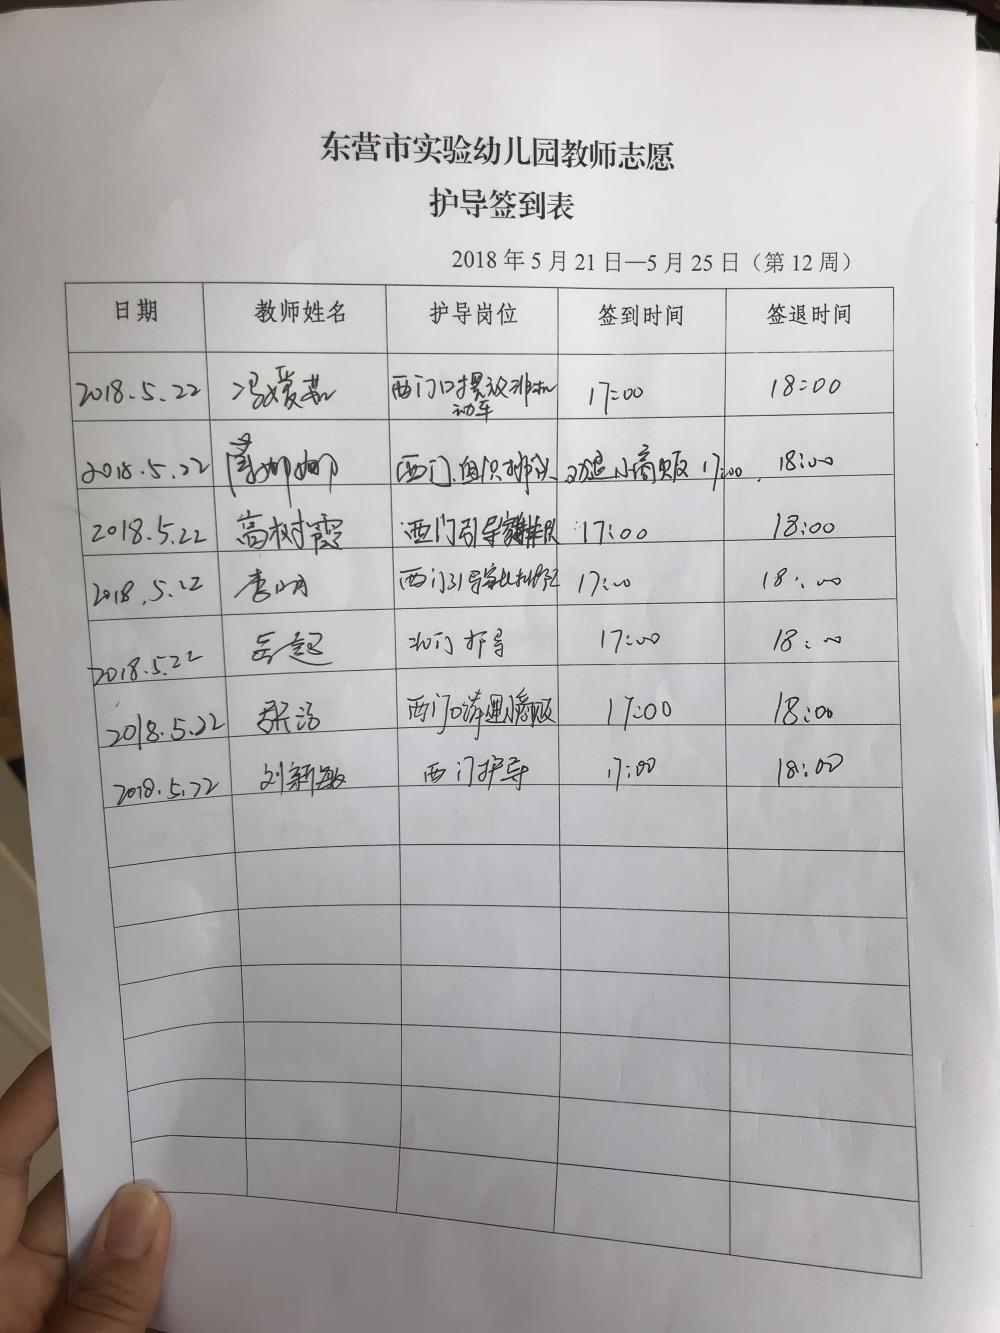 东营市实验幼儿园教师志愿
护导签到表
2018年5月21日—5月25日（第12周）
日期 教师姓名 护导岗位 签到时间 签退时间
2018.5.22 冯爱荔 西门口摆放非机 17:00 18:00
动车
2018.5.22 娜娜 西门.组织排队 劝退小商贩 17:00. 18:00
2018.5.22 高树霞 西门引导家长排队 17:00 18:00
2018.5.22 李 西门引导家长 17:00 18:00
2018.5.22 岳起 北门护导 17:00 18:00
2018.5.22 西门口清理小商贩 17:00 18:00
2018.5.22 刘新敏 西门护导 17:00 18:00